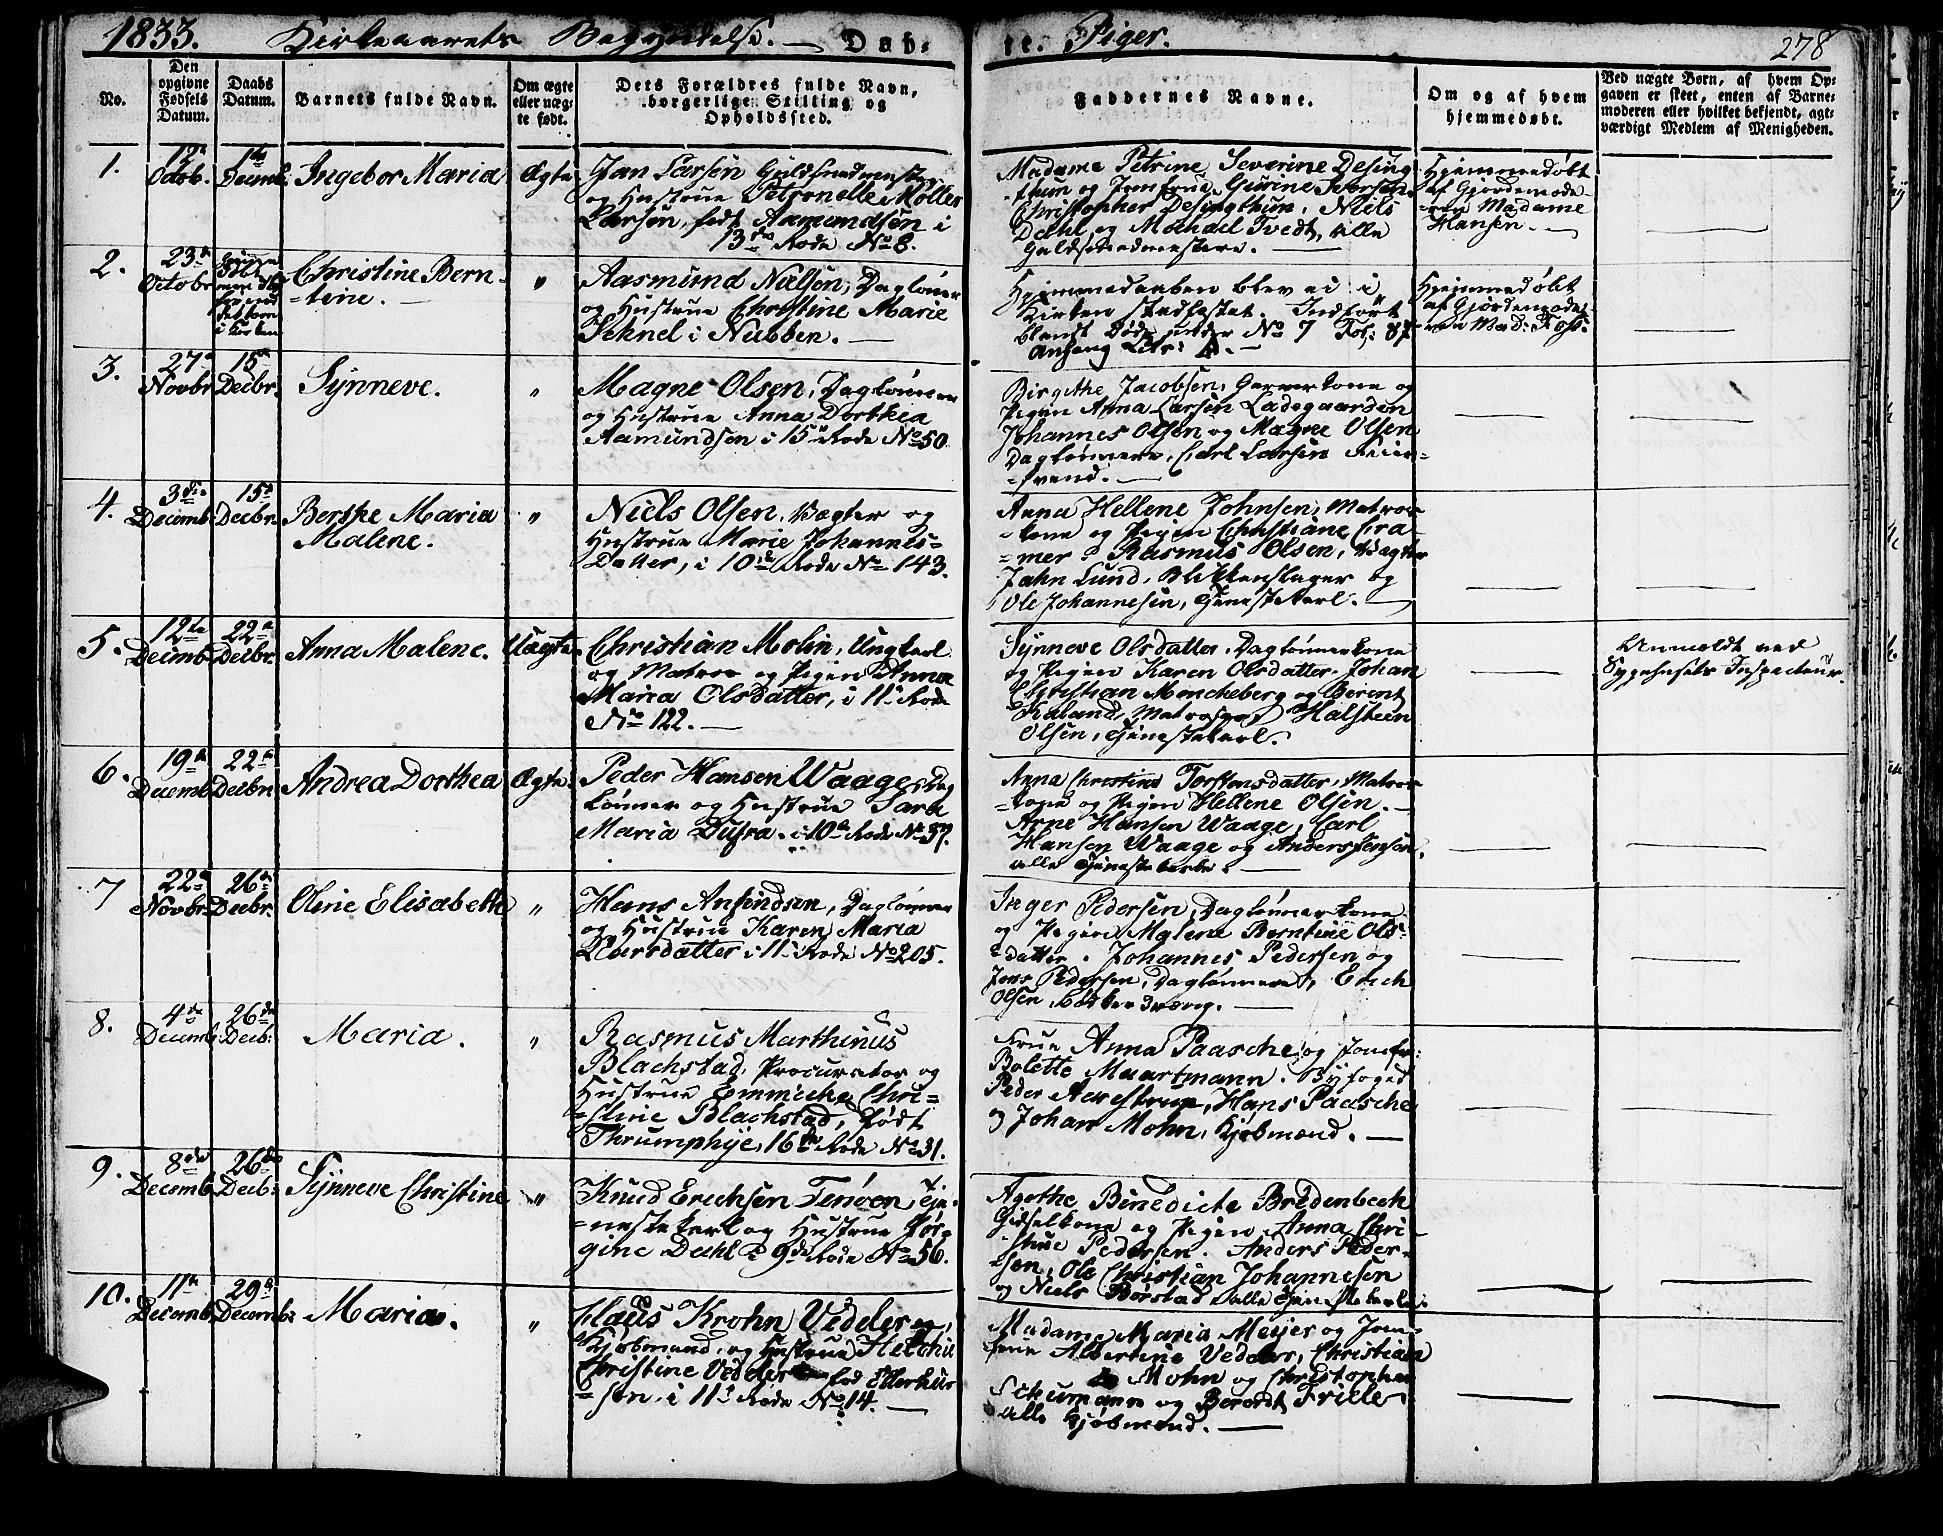 1833. Kirkeaarets Begyndelse. — Døb-
te. Piger.
278
No.
Den
opgivne
Fødsels
Datum.
Daabs
Datum.
Barnets fulde Navn.
Om ægte
eller uæg-
te født.
Dets Forældres fulde Navn,
borgerlige Stilling og
Opholdssted.
Faddernes Navne.
Om og af hvem
hjemmedøbt.
Ved uægte Børn, af hvem Op-
gaven er skeet, enten af Barne-
moderen eller hvilket bekjendt, agt-
værdigt Medlem af Menigheden.
1.
12te
Octob.
1ste
Decemb.
Ingebor Maria
Ægte
Jan Larsen Guldsmedmester
og Hustrue Petronelle Møller
Larsen, født Aamundsen i
13de Rode No 8.
Madame Petrine Severine Desing-
thun og Jomfrue Gurine Iversen
Christopher Desingthun, Niels
Dahl og Michael Tvedt, alle
Guldsmedmestere. —
Hjemmedøbt
af Gjordemode-
ren Madame
Hansen. —
2.
23de
Octobr
Christine Bern-
-tine. —
"
Aasmund Nielsen, Dagløner
og Hustrue Christine Marie
Jehnel i Nubben. —
Hjemmedaaben blev ei i
Kirken stedfæstet. Indført
blandt Døde under No 7 Fol: 87
Hjemmedøbt
af Gjordemode-
ren Mad: Foss.
3.
27de
Novbr
15de
Decbr.
Synneve.
"
Magne Olsen, Dagløner
og Hustrue Anna Dorthea
Aamundsen i 15de Rode No 50
Birgithe Jacobsen, Garverkone og
Pigen Anna Larsen Ladegaarden
Johannes Olsen og Magne Olsen
Daglønere, Carl Larsen Feier-
-svend. —
4.
3die
Decemb.
15de
Decbr.
Berthe Maria
Malene.
"
Niels Olsen, Vægter og
Hustrue Marie Johannes-
Datter, i 10de Rode No 143.
Anna Hellene Johnsen, Matros-
-kone og Pigen Christiane Cra-
-mer. Rasmus Olsen, Vægter
Jahn Lund, Blikkenslager og
Ole Johannesen, Tjenestekarl. —
5.
12te
Decemb.
22de
Decbr.
Anna Malene.
Uægte.
Christian Molin, Ungkarl
og Matros og Pigen Anna
Maria Olsdatter, i 11te Rode
No 122. —
Synneve Olsdatter, Daglønerkone
og Pigen Karen Olsdatter. Johan
Christian Moncheberg og Berent
Kaland, Matroser, Halsteen
Olsen, Tjenestekarl.
Anmeldt ved
Sygehusets Inspecteur.
6.
19de
Decemb.
22de
Decbr.
Andrea Dorthea
Ægte.
Peder Hansen Waage, Dag-
lønner og Hustrue Sara
Maria Dusra. i 10de Rode No 37.
Anna Christine Torstensdatter, Matros-
-kone og Pigen Hellene Olsen.
Arne Hansen Waage, Carl
Hansen Waage og Anders Jensen,
alle Tjenestekarle. —
7
22de
Novbr.
26de
Decbr.
Oline Elisabeth
"
Hans Anfindsen, Dagløner
og Hustrue Karen Maria
Larsdatter i 11te Rode No 205.
Inger Pedersen, Daglønnerkone
og Pigen Malene Berntine Ols-
-datter. Johannes Pedersen og
Jens Pedersen, Daglønnere, Erich
Olsen Bødkersvend. —
8.
4de
Decemb:
26de
Decb:
Maria.
"
Rasmus Marthinus
Blachstad, Procurator og
Hustrue Emmicke Chri-
-stine Blachstad, født
Thrumphye, 16de Rode No 31.
Frue Anna Paasche og Jomfr:
Bolette Maartmann. Byfoged
Peder Aarestrup, Hans Paasche
og Johan Mohn, Kjøbmænd. —
9.
8de
Decemb.
26de
Decb:
Synneve Christine
"
Knud Erichsen Tenøen, Tje-
-nestekarl og Hustrue Jør-
gine Dahl i 9de Rode No 56.
Agothe Binedicte Bredenbech
Gidselkone og Pigen Anna Chri-
-stine Pedersen. Anders Peder-
-sen, Ole Christian Johannesen
og Niels Børstad alle Tjenestekarle.
10.
11te
Decemb.
29de
Decemb:
Maria.
"
Claus Krohn Vedeler,
Kjøbmand, og Hustrue
Christine Vedeler fød Ellerhus-
-sen, i 11te Rode No 14. —
Madame Maria Meijer og Jom-
frue Albertine Vedeler, Christian
Mohn og Christopher
Schumann og Berendt Friele
alle Kjøbmænd. —